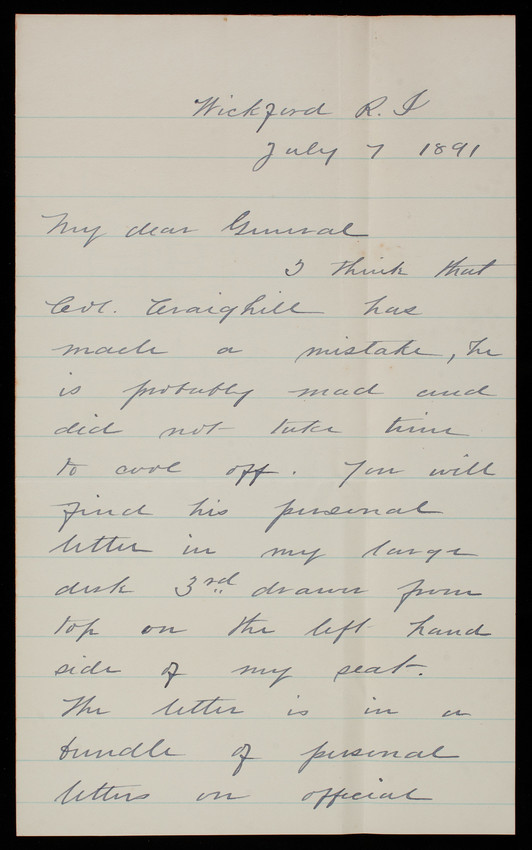 Wickford R.I
July 7 1891
My dear General
I think that
Col. Craighill has
made a mistake, he
is probably mad and
did not take time
to cool off. You will
find his personal
letter in my large
desk 3rd drawer from
top on the left hand
side of my seat.
The letter is in a
bundle of personal
letters on official